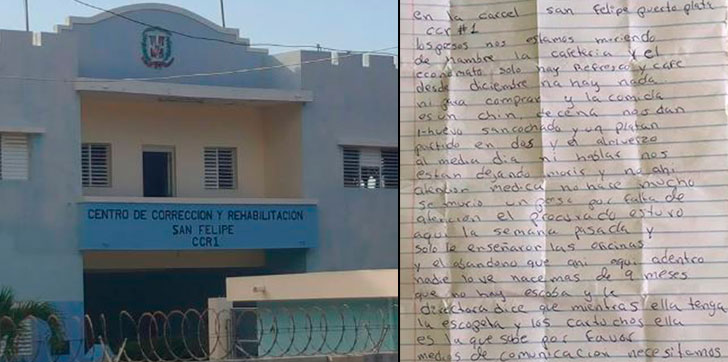 CENTRO DE CORRECCION Y REHABILITACION
SAN FELIPE
CCR1
en la carcel san felipe puerto plata
ccr #1
los presos nos estamos muriendo
de hambre la cafeteria y el
economato solo hay Refresco y cafe
desde diciembre na hay nada
ni para comprar y la comida
es un chin de cena nos dan
1 huevo sancochado y un platan
partido en dos y el almuerzo
al medio dia ni hablar nos
estan dejando morir y no ahi
atencion medica no hace mucho
se murio un preso por falta de
atencion el procurador estuvo
aqui la semana pasada y
solo le enseñaron las oficinas
y el abandono que ahi aqui adentro
nadie lo ve hace mas de 9 meses
que no hay escoba y la
directora dice que mientras ella tenga
la escopeta y los cartuchos ella
es la que sabe por favor
medios de comunicacion necesitamos